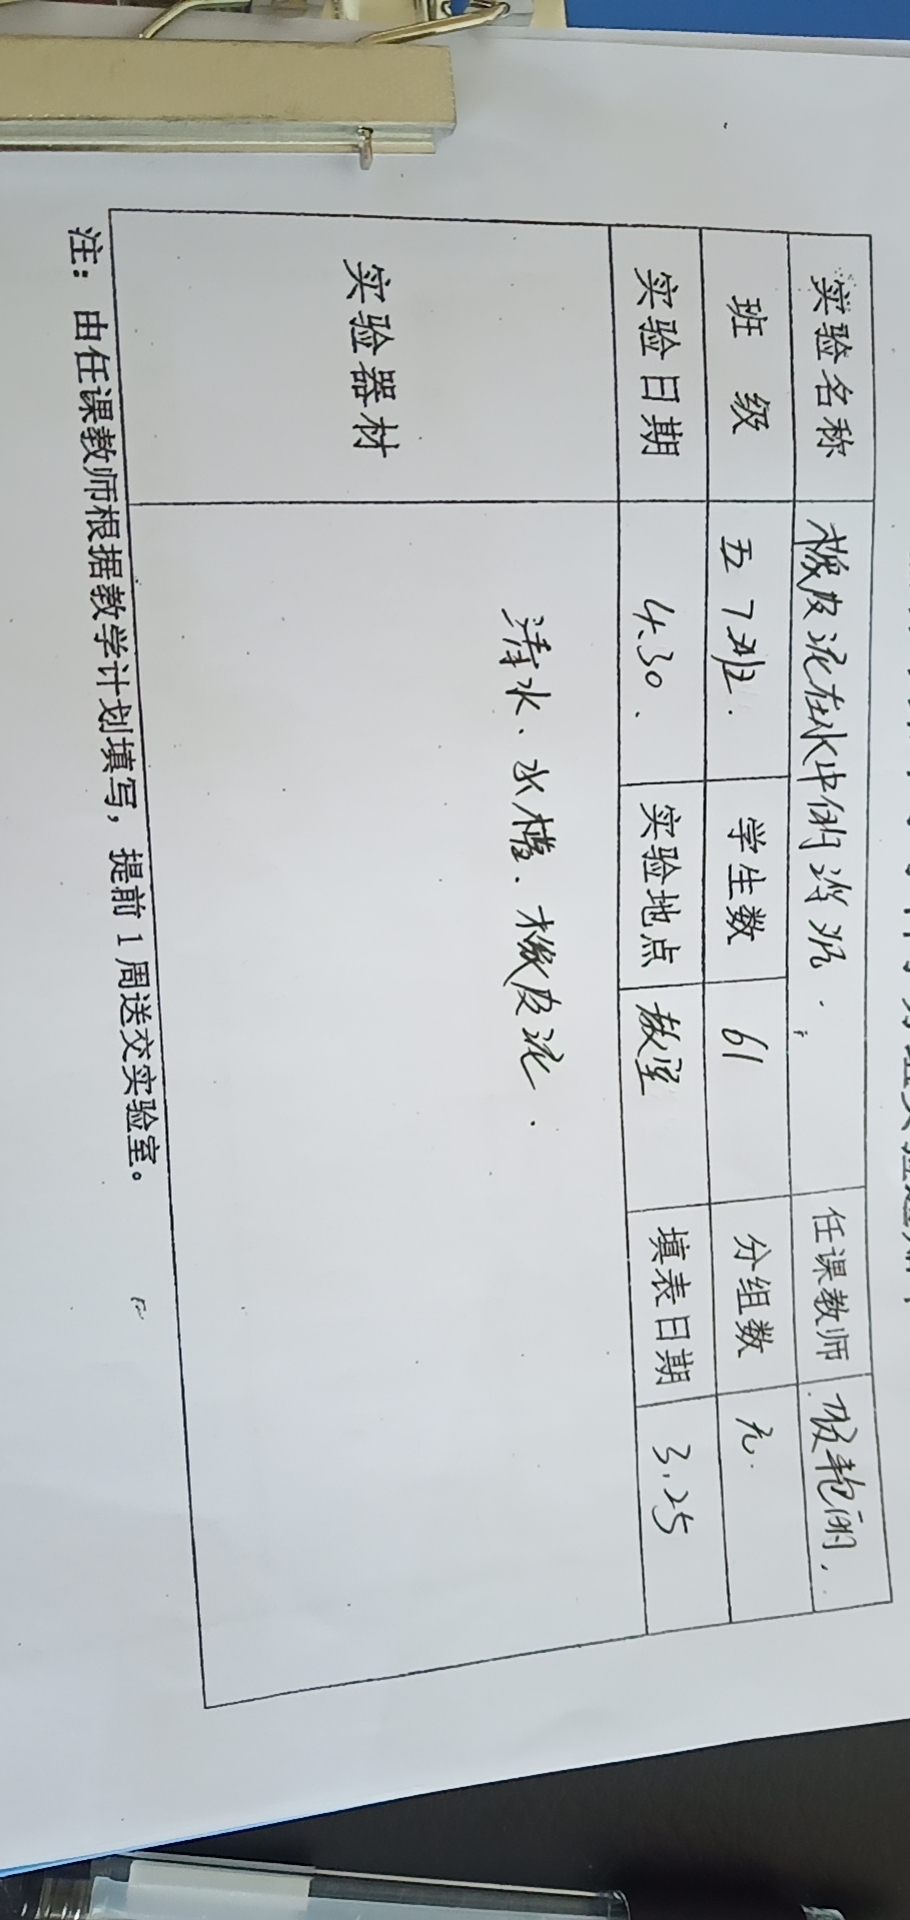 实验名称 橡皮泥在水中的沉 任课教师
班 级 五7班. 学生数 61 分组数
实验日期 4.30、 实验地点 教室 填表日期 3.25
实验器材 清水、水槽、橡皮泥.
注：由任课教师根据教学计划填写，提前1周送交实验室。